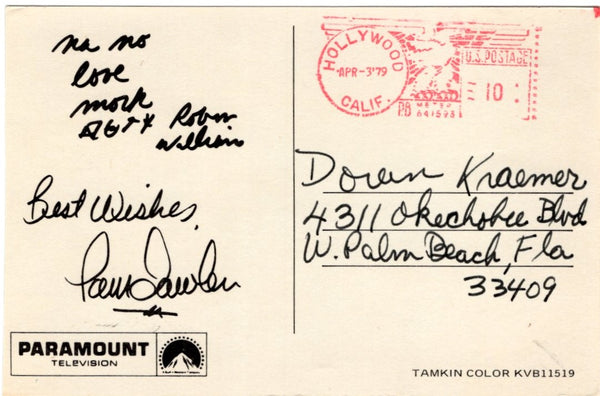 na no
love
mork
Robin
William
Best Wishes,
Pam Dawber
PARAMOUNT
TELEVISION
HOLLYWOOD
APR-3'79
CALIF.
U.S. POSTAGE
10
PB
METER
641593
Doren Kraemer
4311 Okechobee Blvd
W. Palm Beach, Fla
33409
TAMKIN COLOR KVB11519